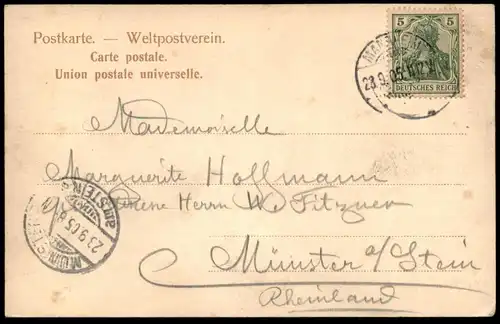 Postkarte. — Weltpostverein.
Carte postale.
Union postale universelle.
5 5
DEUTSCHES REICH
23.9.05.
Mademoiselle
Marguerite Hoffmann
Herrn W. Fitzner
Münster a/Stein
Rheinland
MÜNSTER
AM STEIN
23.9.05.